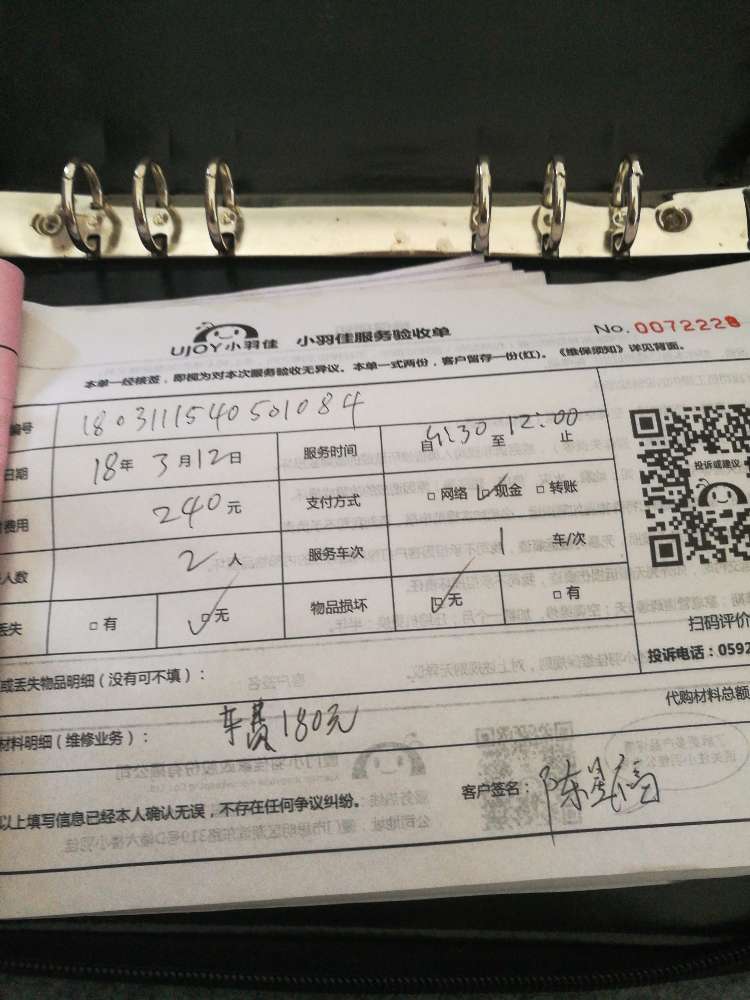 UJOY小羽佳 小羽佳服务验收单 No.0072228
本单一经核签，即视为对本次服务验收无异议。本单一式两份，客户留存一份(红)。《维保须知》详见背面。
编号 1803111540501084
日期 18年3月12日 服务时间 自 :30 至 12:00 止
费用 240元 支付方式 □网络 □现金 □转账
人数 2人 服务车次 1 车/次
丢失 □有 □无 物品损坏 □无 □有
投诉或建议
扫码评价
投诉电话：0592
或丢失物品明细（没有可不填）：
代购材料总额
材料明细（维修业务）： 车费180元
以上填写信息已经本人确认无误，不存在任何争议纠纷。 客户签名：